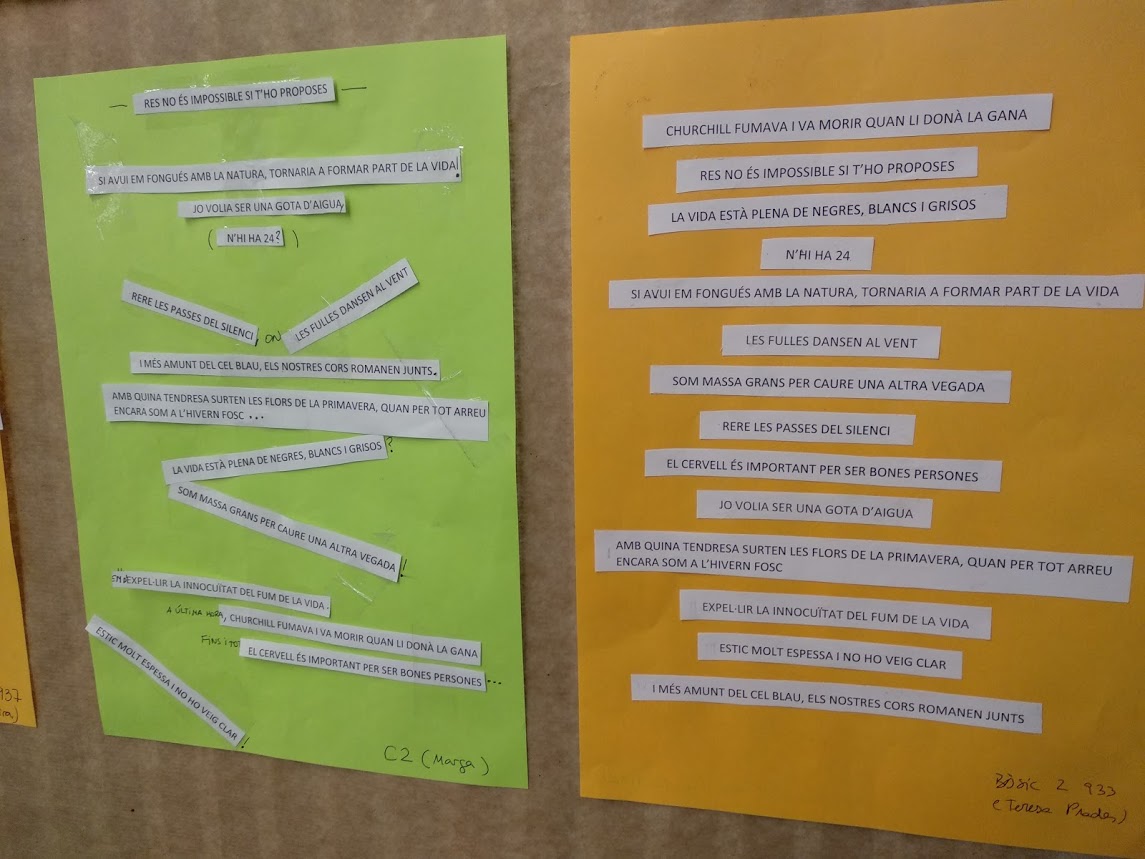 — RES NO ÉS IMPOSSIBLE SI T'HO PROPOSES —
SI AVUI EM FONGUÉS AMB LA NATURA, TORNARIA A FORMAR PART DE LA VIDA!
JO VOLIA SER UNA GOTA D'AIGUA,
( N'HI HA 24? )
RERE LES PASSES DEL SILENCI, ON LES FULLES DANSEN AL VENT
I MÉS AMUNT DEL CEL BLAU, ELS NOSTRES CORS ROMANEN JUNTS.
AMB QUINA TENDRESA SURTEN LES FLORS DE LA PRIMAVERA, QUAN PER TOT ARREU
ENCARA SOM A L'HIVERN FOSC ...
LA VIDA ESTÀ PLENA DE NEGRES, BLANCS I GRISOS?
SOM MASSA GRANS PER CAURE UNA ALTRA VEGADA!
EXPEL·LIR LA INNOCUÏTAT DEL FUM DE LA VIDA.
A ÚLTIMA HORA, CHURCHILL FUMAVA I VA MORIR QUAN LI DONÀ LA GANA
FINS I TOT EL CERVELL ÉS IMPORTANT PER SER BONES PERSONES...
ESTIC MOLT ESPESSA I NO HO VEIG CLAR!
C2 (Marga)
CHURCHILL FUMAVA I VA MORIR QUAN LI DONÀ LA GANA
RES NO ÉS IMPOSSIBLE SI T'HO PROPOSES
LA VIDA ESTÀ PLENA DE NEGRES, BLANCS I GRISOS
N'HI HA 24
SI AVUI EM FONGUÉS AMB LA NATURA, TORNARIA A FORMAR PART DE LA VIDA
LES FULLES DANSEN AL VENT
SOM MASSA GRANS PER CAURE UNA ALTRA VEGADA
RERE LES PASSES DEL SILENCI
EL CERVELL ÉS IMPORTANT PER SER BONES PERSONES
JO VOLIA SER UNA GOTA D'AIGUA
AMB QUINA TENDRESA SURTEN LES FLORS DE LA PRIMAVERA, QUAN PER TOT ARREU
ENCARA SOM A L'HIVERN FOSC
EXPEL·LIR LA INNOCUÏTAT DEL FUM DE LA VIDA
ESTIC MOLT ESPESSA I NO HO VEIG CLAR
I MÉS AMUNT DEL CEL BLAU, ELS NOSTRES CORS ROMANEN JUNTS
Bàsic 2 933
(Teresa Prades)
937